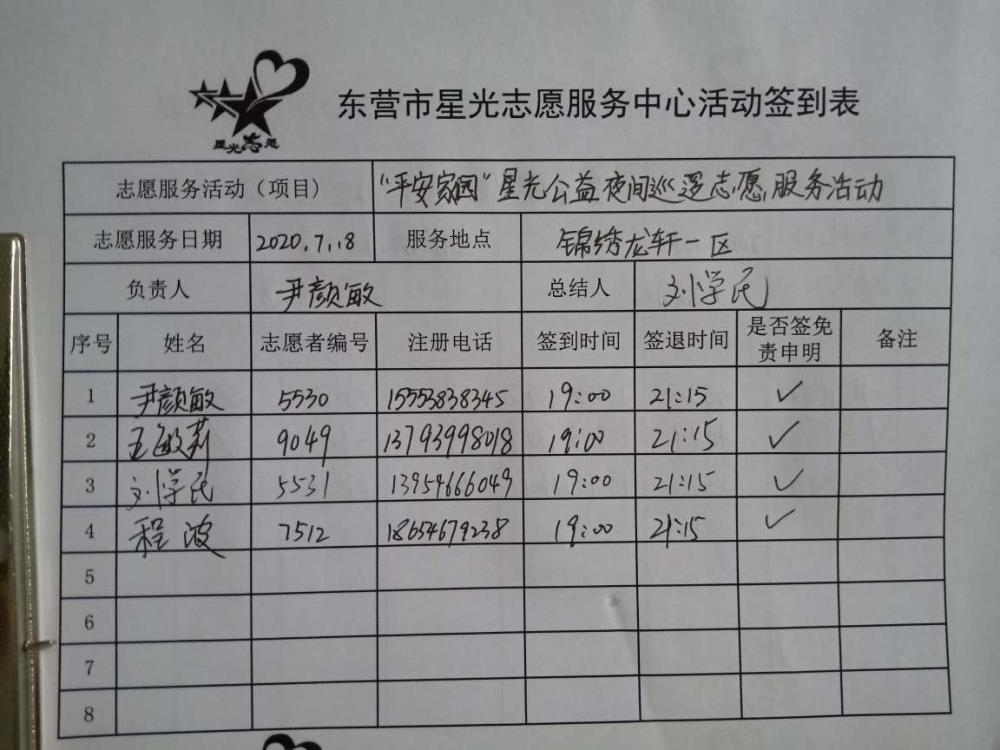 星光志愿
东营市星光志愿服务中心活动签到表
志愿服务活动（项目） “平安家园”星光公益夜间巡逻志愿服务活动
志愿服务日期 2020.7.18 服务地点 锦绣龙轩一区
负责人 尹颜敏 总结人 刘学民
序号 姓名 志愿者编号 注册电话 签到时间 签退时间 是否签免责申明 备注
1 尹颜敏 5530 15553838345 19:00 21:15 ✓
2 王敏莉 9049 13793998018 19:00 21:15 ✓
3 刘学民 5531 13954666049 19:00 21:15 ✓
4 程波 7512 18654679238 19:00 21:15 ✓
5
6
7
8